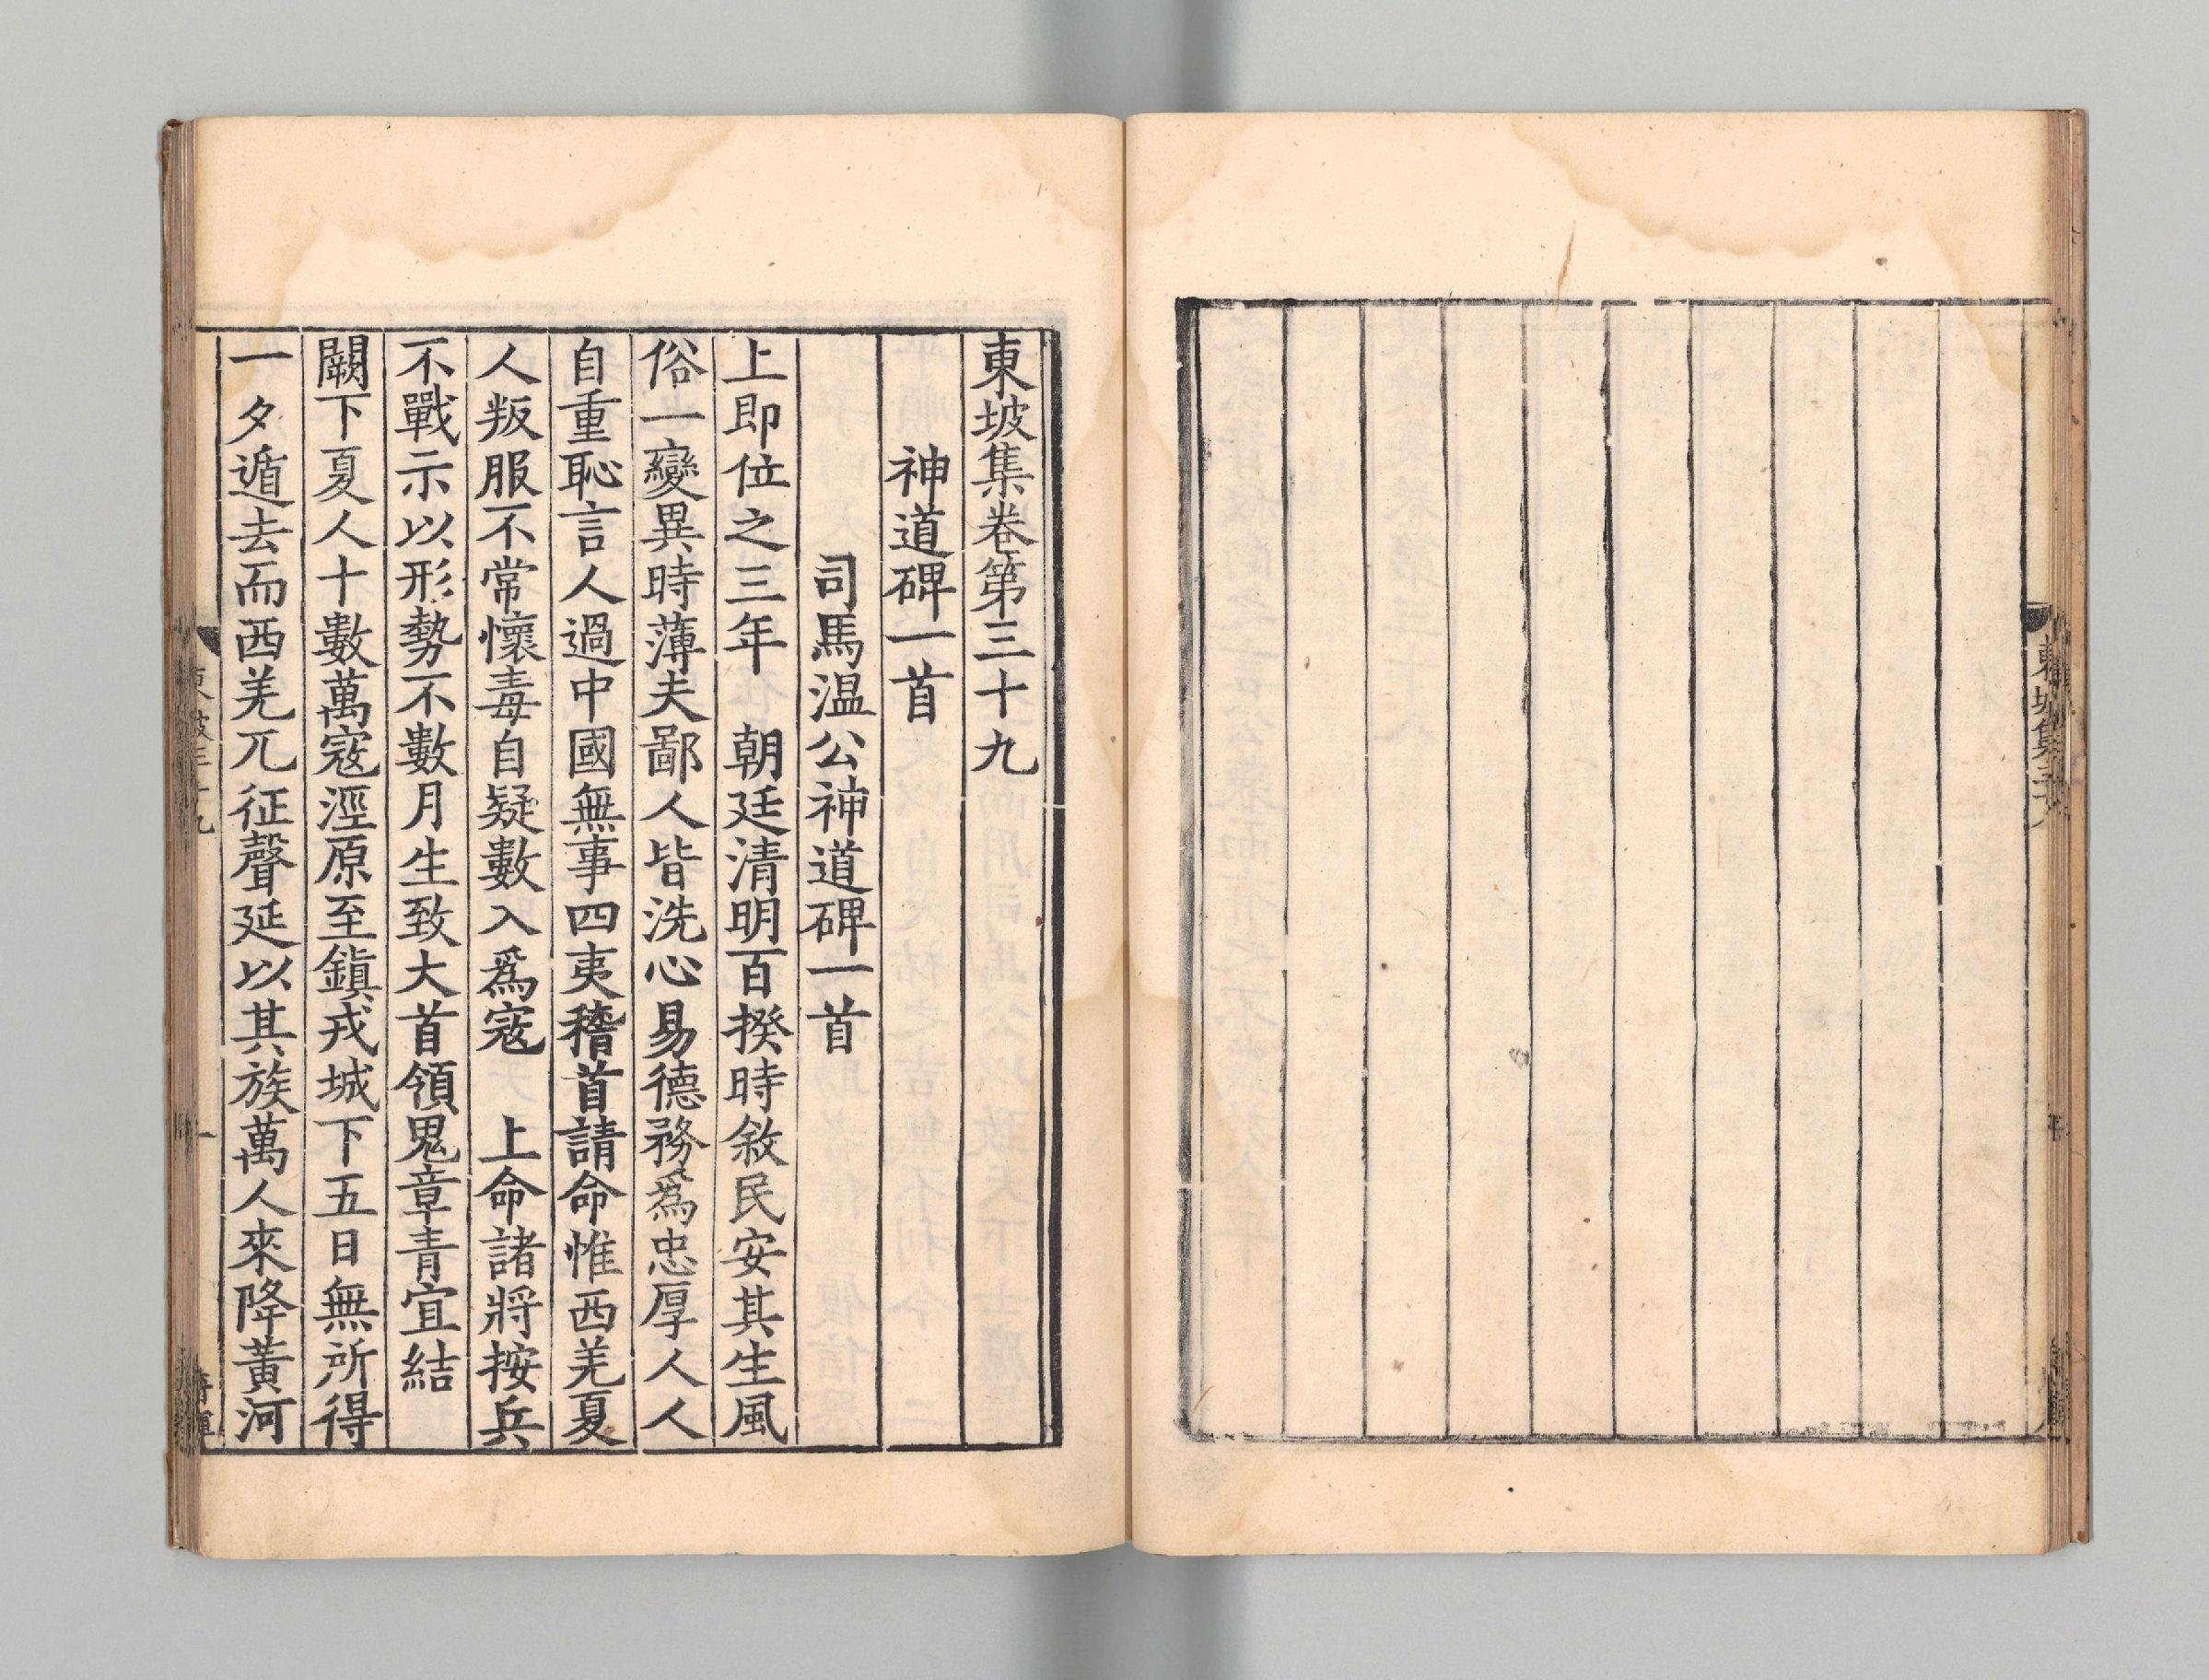 東坡集卷第三十九
神道碑一首
司馬温公神道碑一首
上即位之三年　朝廷清明百揆時敘民安其生風
俗一變異時薄夫鄙人皆洗心易德務爲忠厚人人
自重恥言人過中國無事四夷稽首請命惟西羌夏
人叛服不常懷毒自疑數入爲寇　上命諸將按兵
不戰示以形勢不數月生致大首領鬼章青宜結
闕下夏人十數萬寇涇原至鎮戎城下五日無所得
一夕遁去而西羌兀征聲延以其族萬人來降黃河